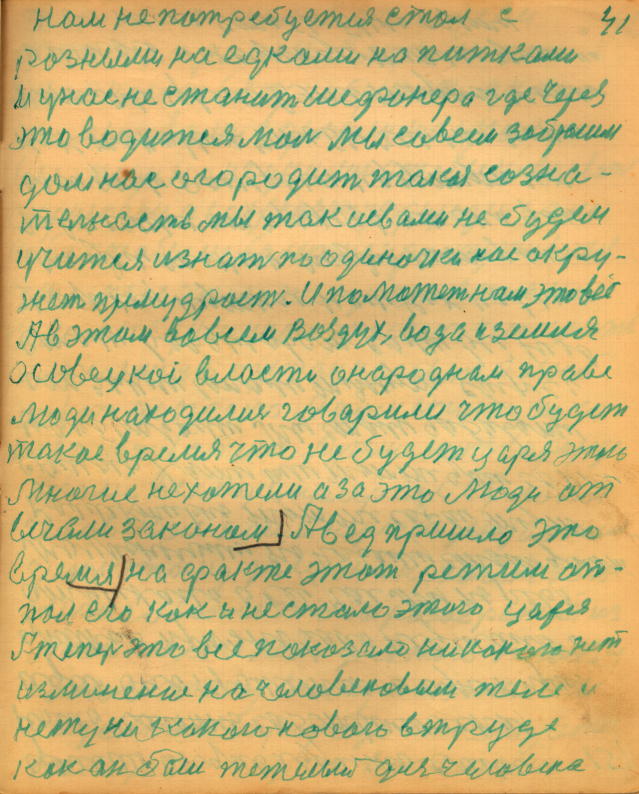 нам не потребуется стол с 41
розными на едками на питками
И унас не станит шефонера где через
это водится мол мы совсем забросим
дом нас огородит такая созна-
тельность мы так исвами не будем
учится и знат по одиночки нас окру-
жет примудрост. И поможет нам это всё
А в этом вовсем воздух, вода и земля
О советской власти онароднам праве
люди находилия говарили что будет
такое время что не будет царя этого
многие нехотели аза это люди от
вечали законом А вед пришло это
время на факте этот режим от-
пол его как и не стало этого царя
А тепер это все показало никакого нет
изминение на человековым теле и
нету ни какого нового втруде
как он был тежелый для человека